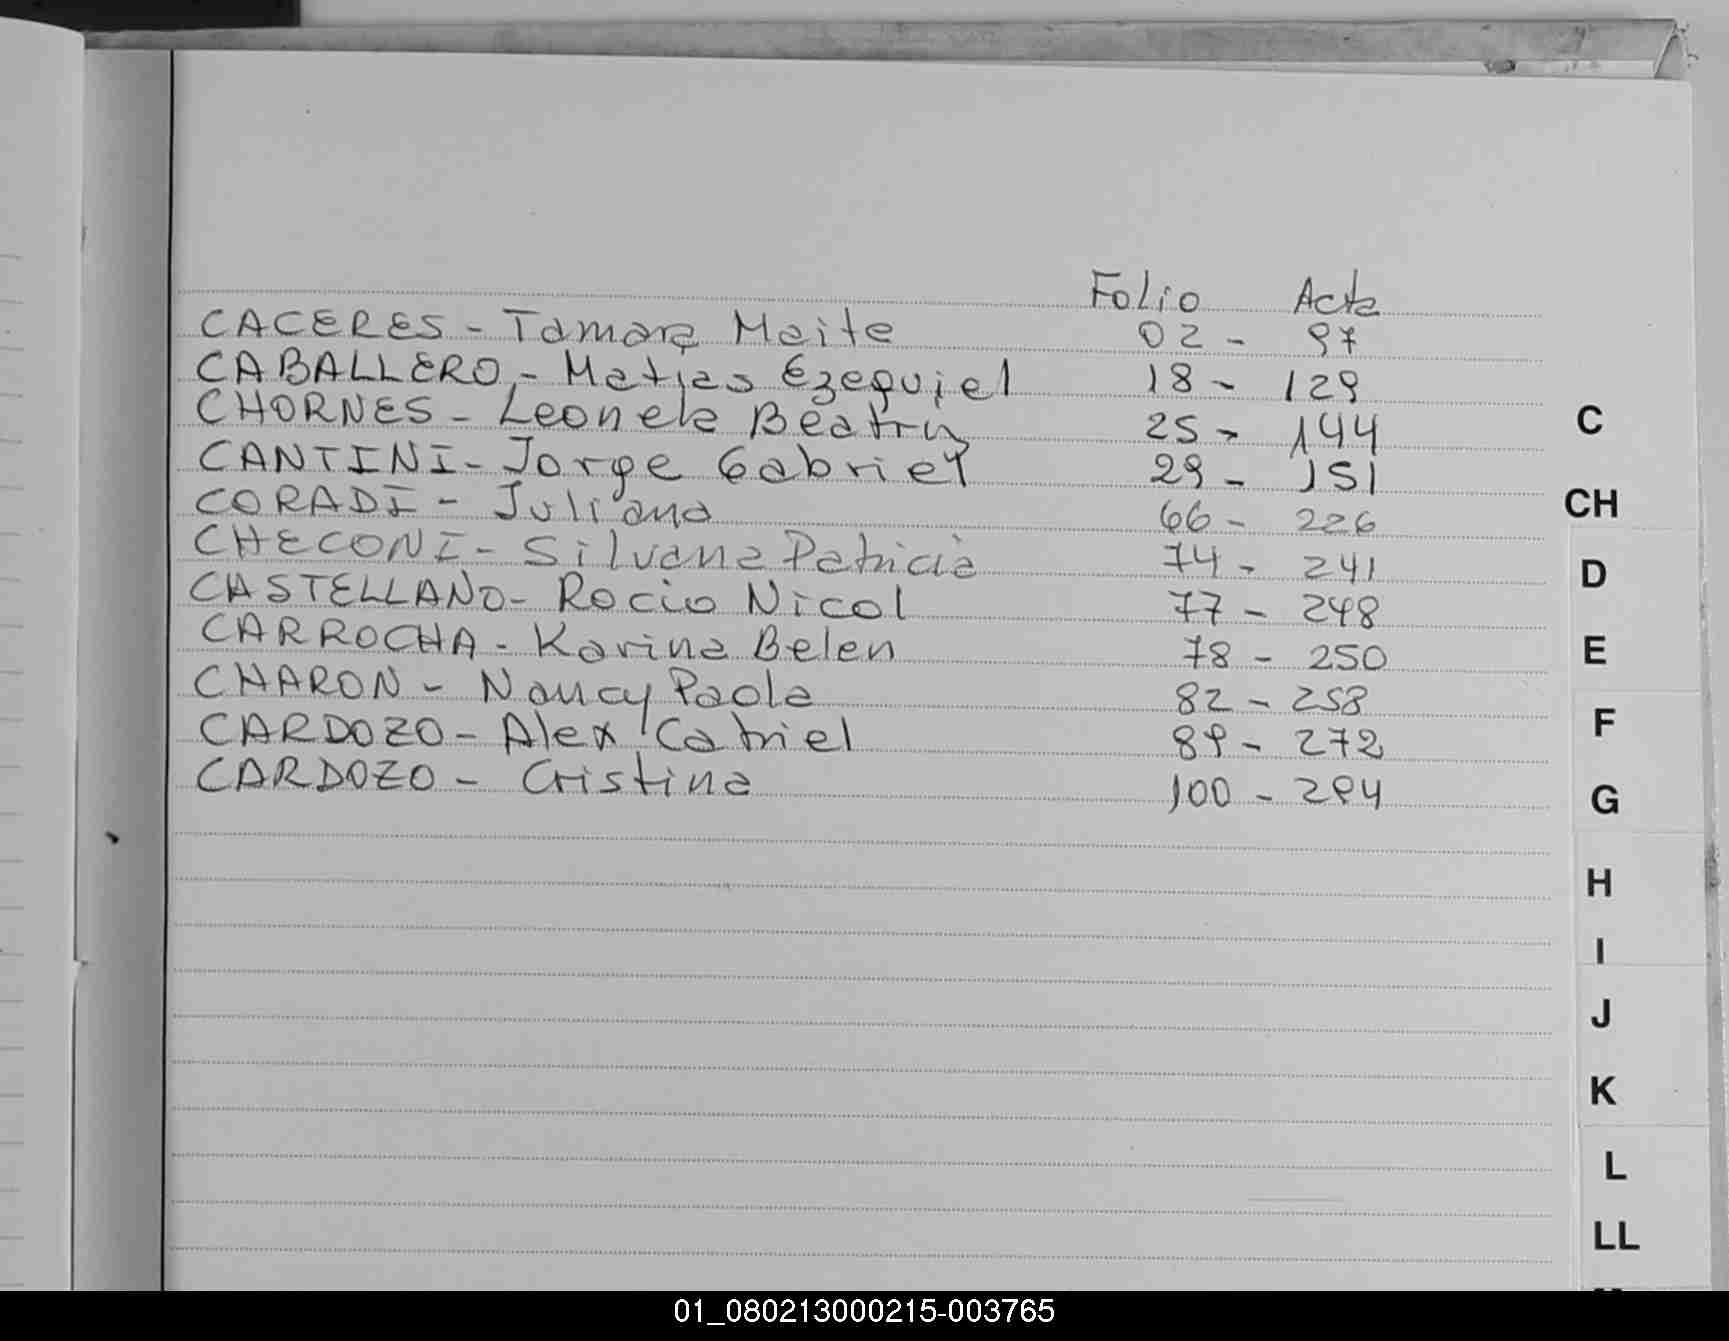 Folio Acta
CACERES - Tamara Maite 02 - 97
CABALLERO - Matias Ezequiel 18 - 129
CHORNES - Leonela Beatriz 25 - 144
CANTINI - Jorge Gabriel 29 - 151
CORADI - Juliana 66 - 226
CHECONI - Silvana Patricia 74 - 241
CASTELLANO - Rocio Nicol 77 - 248
CARROCHA - Karina Belen 78 - 250
CHARON - Nancy Paola 82 - 258
CARDOZO - Alex Catriel 89 - 272
CARDOZO - Cristina 100 - 294
C
CH
D
E
F
G
H
I
J
K
L
LL
01_080213000215-003765